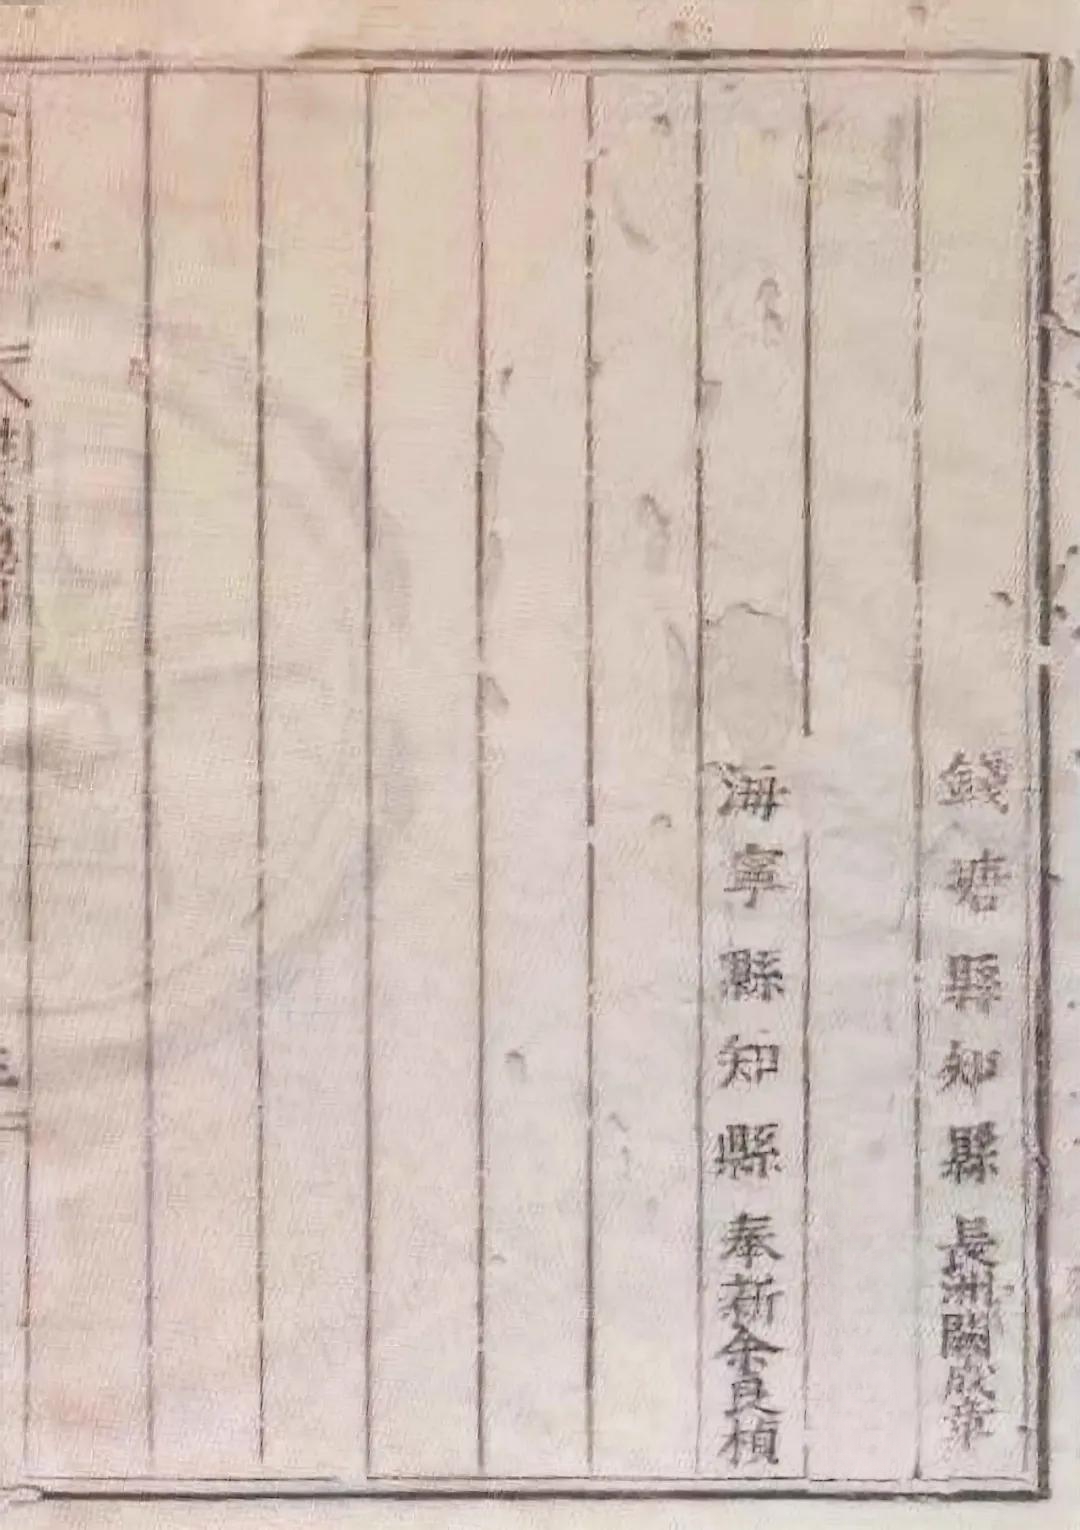 錢塘縣知縣長洲關成章
海寧縣知縣奉新余良楨